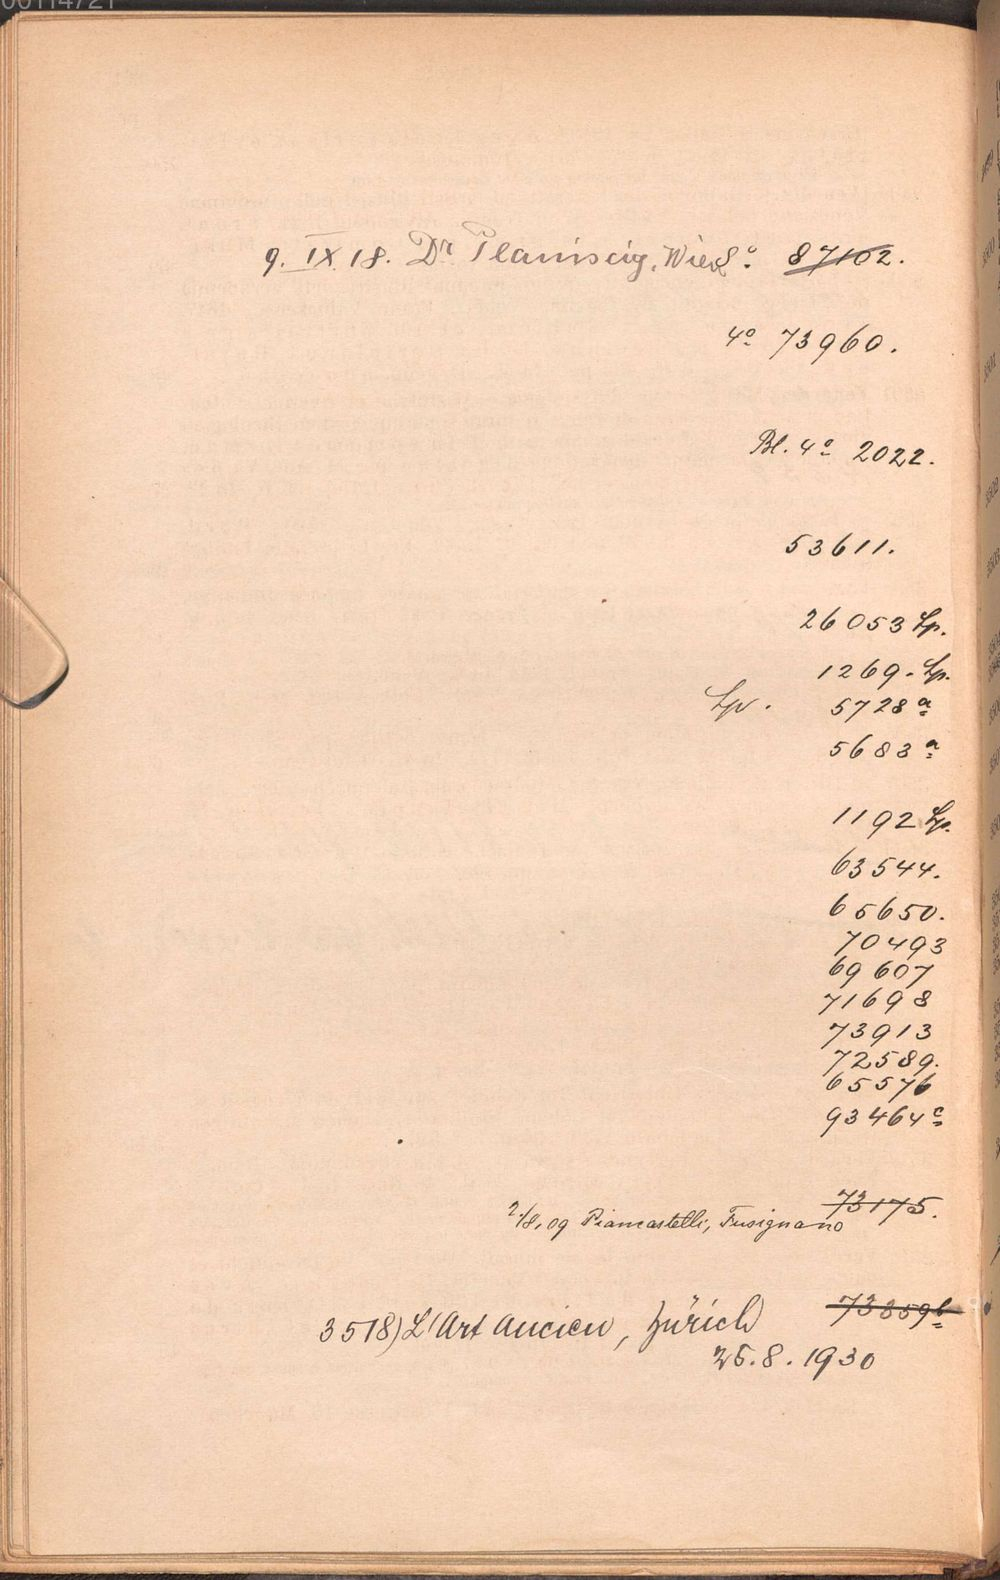 00114721
9. IX 18. Dr Planiscig, Wien 2º 87102.
4º 73960.
Bl. 4º 2022.
53611.
26053 Lp.
1269. Lp.
Lp. 5728 a
5683 a
1192 Lp.
63544.
65650.
70493
69607
71698
73913
72589.
65576
93464 c
73175.
2/8. 09 Piancastelli, Fusignano
73859 b
3518) L'Art ancien, Zürich
25.8.1930